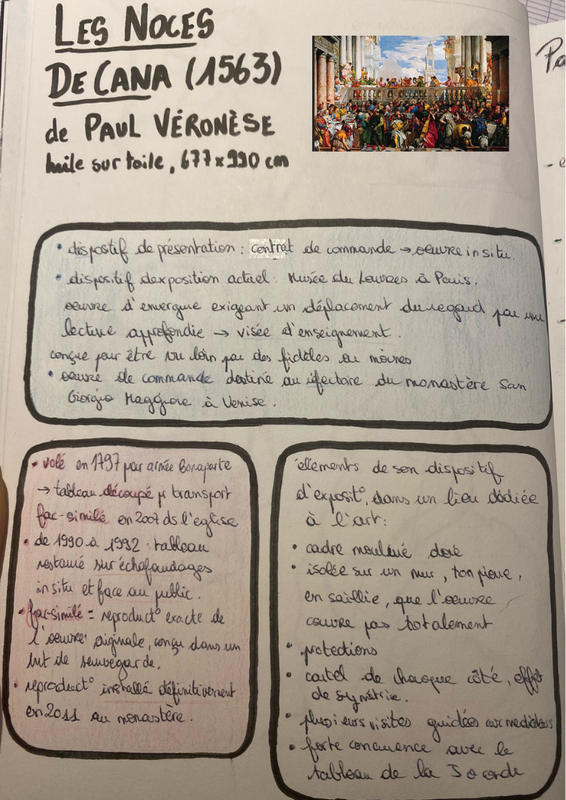 LES NOCES
DE CANA (1563)
de PAUL VÉRONÈSE
huile sur toile, 677 x 990 cm
• dispositif de présentation : contrat de commande → oeuvre in situ.
• dispositif d'exposition actuel : Musée du Louvres à Paris.
oeuvre d'envergue exigeant un déplacement du regard par une
lecture approfondie → visée d'enseignement.
conçue pour être vu loin par des fidèles ou moines
• oeuvre de commande destiné au réfectoire du monastère San
Giorgio Maggiore à Venise.
• volé en 1797 par armée Bonaparte
→ tableau découpé pr transport
fac-similé en 2007 ds l'église
• de 1990 à 1992 : tableau
restauré sur échafaudages
in situ et face au public.
• fac-similé = reproduct° exacte de
l'oeuvre originale, conçu dans un
but de sauvegarde.
• reproduct° installé définitivement
en 2011 au monastère.
élements de son dispositif
d'exposit°, dans un lieu dédiée
à l'art :
• cadre mouluré doré
• isolée sur un mur, ton pierre,
en saillie, que l'oeuvre
couvre pas totalement
• protections
• cartel de chaque côté, effet
de symétrie.
• plusieurs visites guidées aux médiateurs
• forte concurrence avec le
tableau de la Joconde
Pa